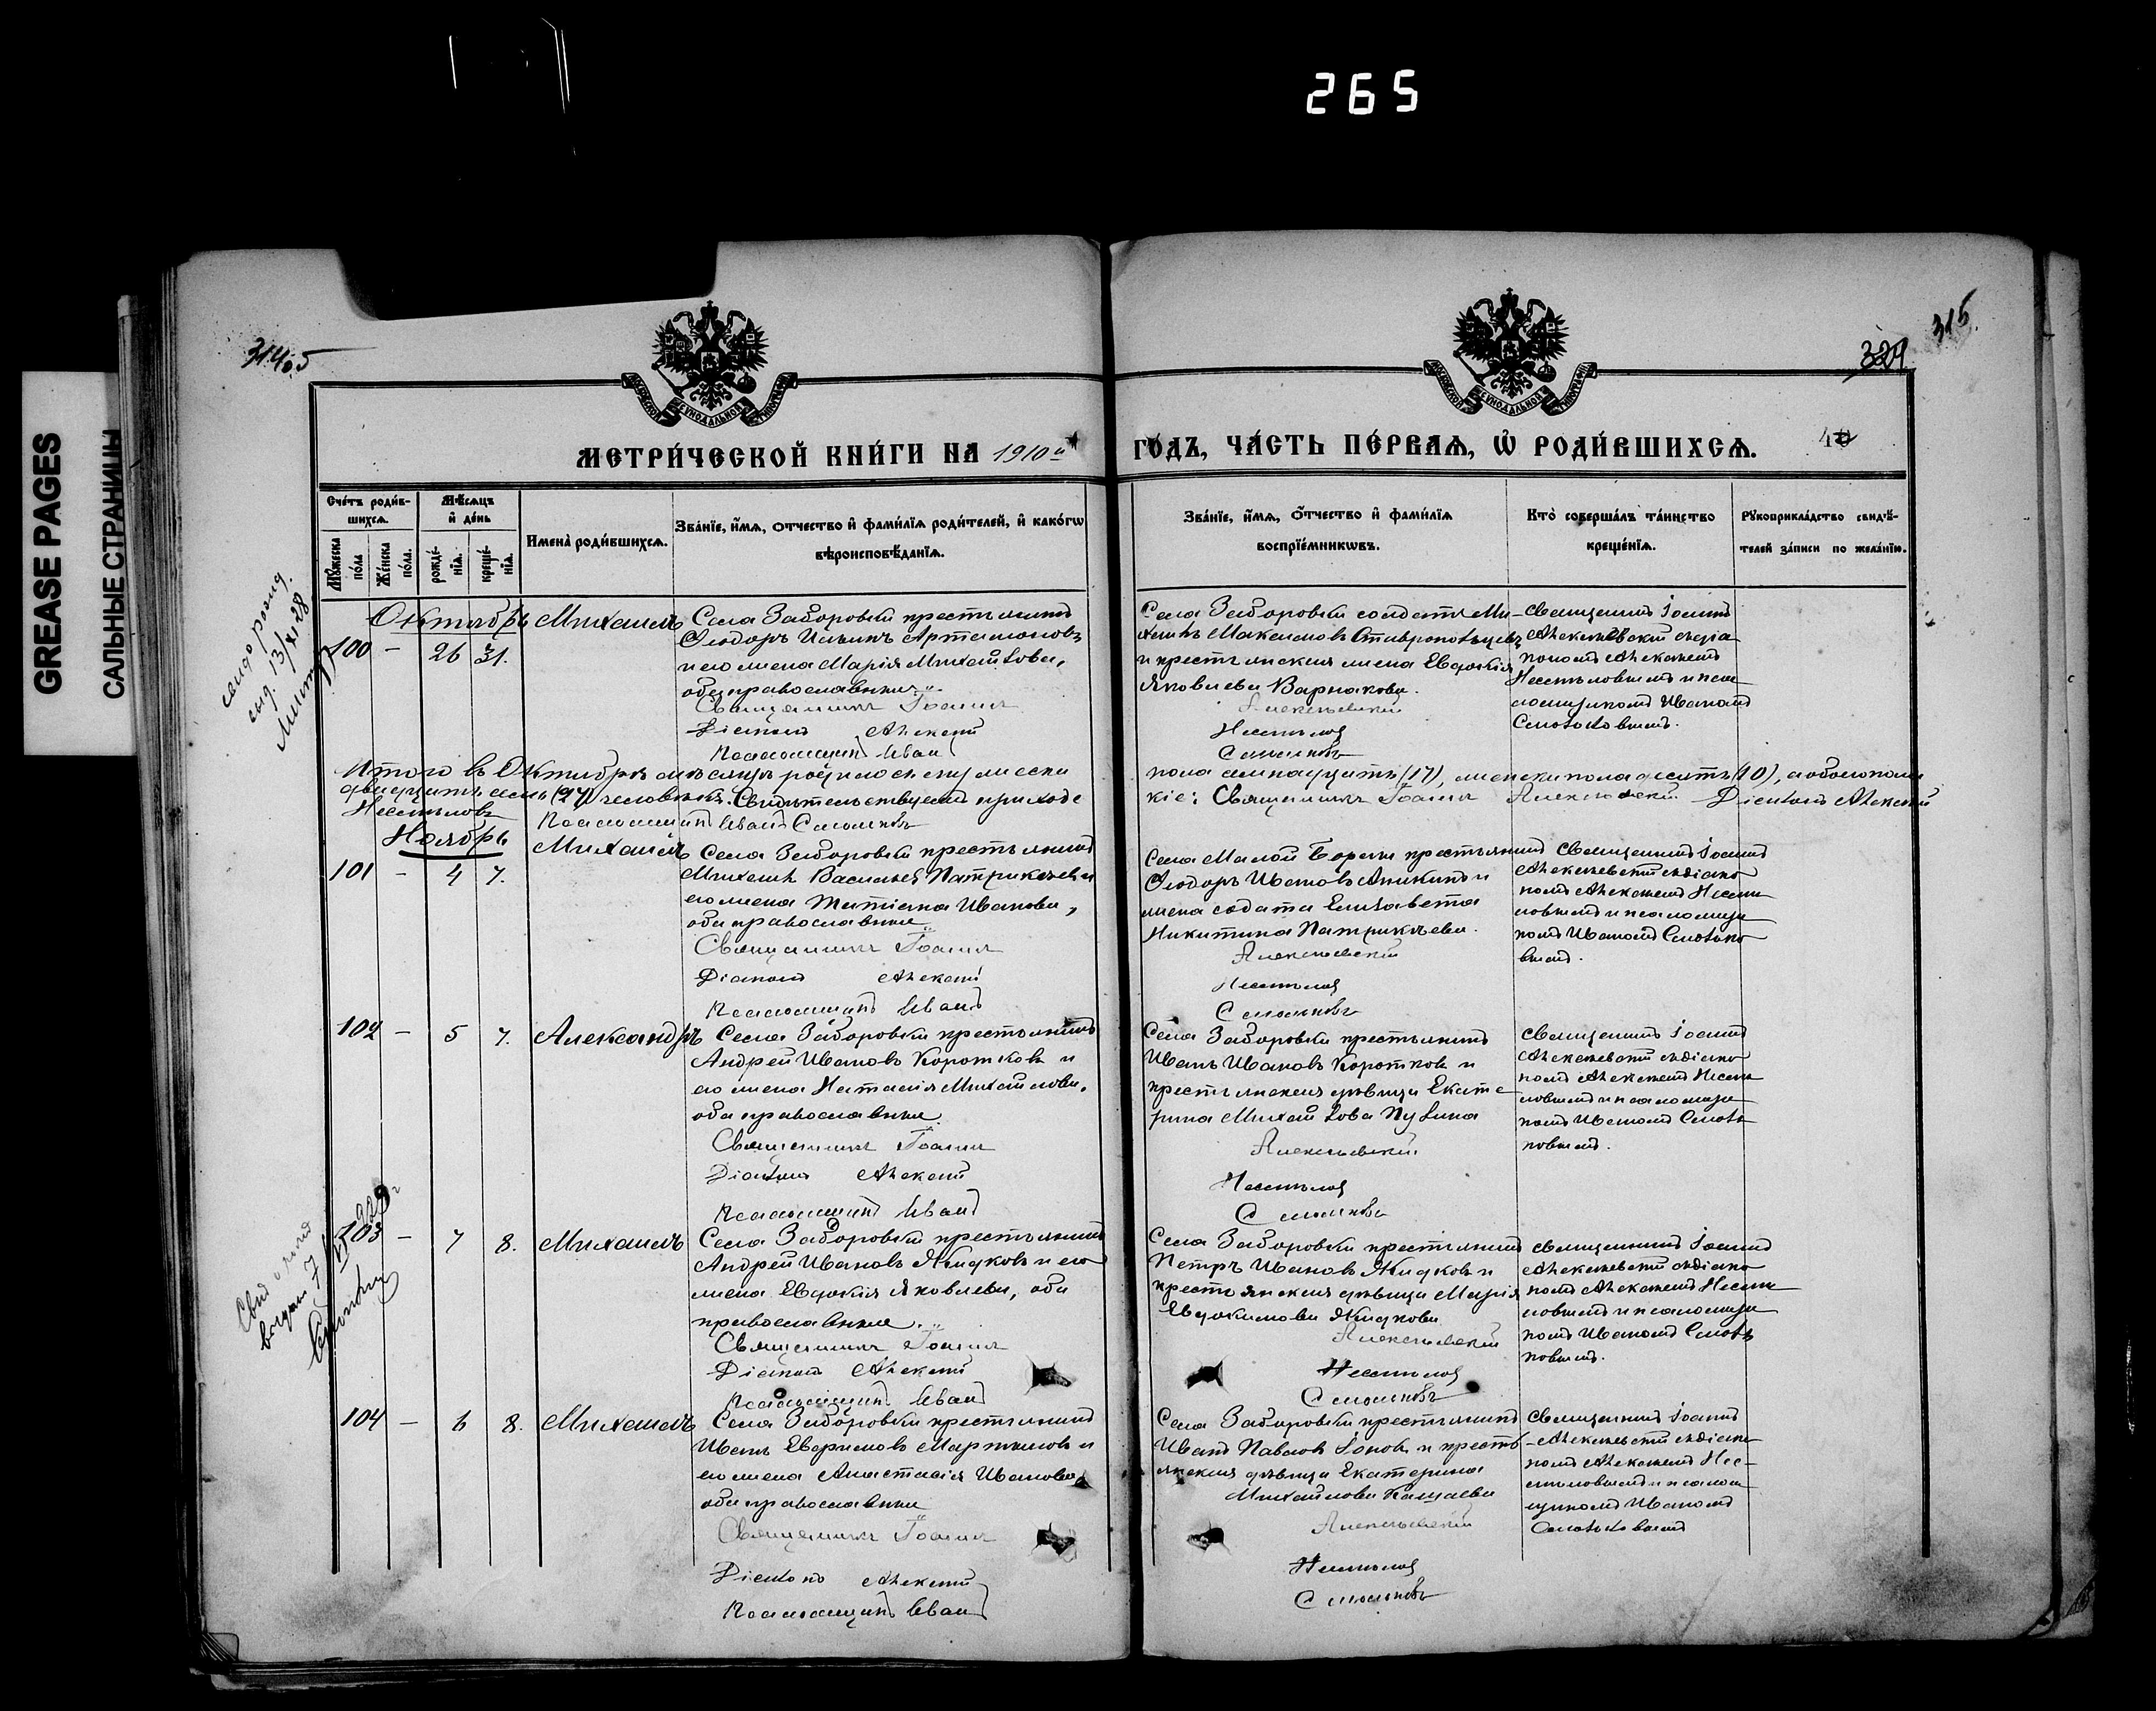 265
GREASE PAGES
САЛЬНЫЕ СТРАНИЦЫ
315.
329
МЕТРИ́ЧЕСКОЙ КНИ́ГИ НА 1910й
ГО́ДЪ, ЧА́СТЬ ПЕ́РВАѦ, Ѡ҆ РОДИ́ВШИХСѦ.
Сче́тъ роди́в-
шихсѧ.
Мѣ́сѧцъ
и҆ де́нь
Мꙋ́жеска
по́ла
Же́нска
по́ла.
рожде́-
нїѧ.
креще́-
нїѧ.
Имена̀ роди́вшихсѧ.
Зва́нїе, и҆́мѧ, ѻ҆́тчество и҆ фами́лїѧ роди́телей, и҆ како́гѡ
вѣроисповѣ́данїѧ.
Зва́нїе, и҆́мѧ, ѻ҆́тчество и҆ фами́лїѧ
воспрїе́мникѡвъ.
Кто̀ соверша́лъ та́инство
креще́нїѧ.
Рꙋкоприкла́дство свидѣ́-
телей за́писи по жела́нїю.
Октябрь
100 - 26 31. Михаилъ
Села Заборовки крестьянинъ
Ѳеодоръ Ильинъ Артамоновъ
и его жена Марія Михайлова,
оба православные.
Священникъ Іоаннъ
Діаконъ Алексѣй
Псаломщикъ Иванъ
Села Заборовки солдатъ Ми-
хаилъ Максимовъ Ставропольцевъ
и крестьянская жена Евдокія
Яковлева Варнакова.
Алексѣевскій
Несмѣловъ
Смольковъ
Священникъ Іоаннъ
Алексѣевскій съ діа-
кономъ Алексѣемъ
Несмѣловымъ и пса-
ломщикомъ Иваномъ
Смольковымъ.
Итого въ Октябрѣ мѣсяцѣ родилось мужеска
пола семнадцать (17), женска пола десять (10), а обоего пола
двадцать семь (27) человѣкъ. Свидѣтельствуемъ
Священникъ Іоаннъ Алексѣевскій Діаконъ Алексѣй
Несмѣловъ Псаломщикъ Иванъ Смольковъ
Ноябрь
101 - 4 7. Михаилъ
Села Заборовки крестьянинъ
Михаилъ Васильевъ Патрикѣевъ и
его жена Татіана Иванова,
оба православные
Священникъ Іоаннъ
Діаконъ Алексѣй
Псаломщикъ Иванъ
Села Малой Борлы крестьянинъ
Ѳеодоръ Ивановъ Аникинъ и
жена солдата Елизавета
Никитина Патрикѣева.
Алексѣевскій
Несмѣловъ
Смольковъ
Священникъ Іоаннъ
Алексѣевскій съ діако-
номъ Алексѣемъ Несмѣ-
ловымъ и псаломщи-
комъ Иваномъ Смолько-
вымъ.
102 - 5 7. Александръ
Села Заборовки крестьянинъ
Андрей Ивановъ Коротковъ и
его жена Наталія Михайлова,
оба православные
Священникъ Іоаннъ
Діаконъ Алексѣй
Псаломщикъ Иванъ
Села Заборовки крестьянинъ
Иванъ Ивановъ Коротковъ и
крестьянская дѣвица Екате-
рина Михайлова Пулина
Алексѣевскій
Несмѣловъ
Смольковъ
Священникъ Іоаннъ
Алексѣевскій съ діако-
номъ Алексѣемъ Несмѣ-
ловымъ и псаломщи-
комъ Иваномъ Смоль-
ковымъ.
103 - 7 8. Михаилъ
Села Заборовки крестьянинъ
Андрей Ивановъ Жидковъ и его
жена Евдокія Яковлева, оба
православные.
Священникъ Іоаннъ
Діаконъ Алексѣй
Псаломщикъ Иванъ
Села Заборовки крестьянинъ
Петръ Ивановъ Жидковъ и
крестьянская дѣвица Марія
Евдокимова Жидкова
Алексѣевскій
Несмѣловъ
Смольковъ
Священникъ Іоаннъ
Алексѣевскій съ діако-
номъ Алексѣемъ Несмѣ-
ловымъ и псаломщи-
комъ Иваномъ Смоль-
ковымъ.
104 - 6 8. Михаилъ
Села Заборовки крестьянинъ
Иванъ Мартыновъ и
его жена Анастасія Иванова
оба православные
Священникъ Іоаннъ
Діаконъ Алексѣй
Псаломщикъ Иванъ
Села Заборовки крестьянинъ
Иванъ Павловъ Іоновъ и кресть-
янская дѣвица Екатерина
Михайлова Кащаева
Алексѣевскій
Несмѣловъ
Смольковъ
Священникъ Іоаннъ
Алексѣевскій съ діако-
номъ Алексѣемъ Нес-
мѣловымъ и псалом-
щикомъ Иваномъ
Смольковымъ